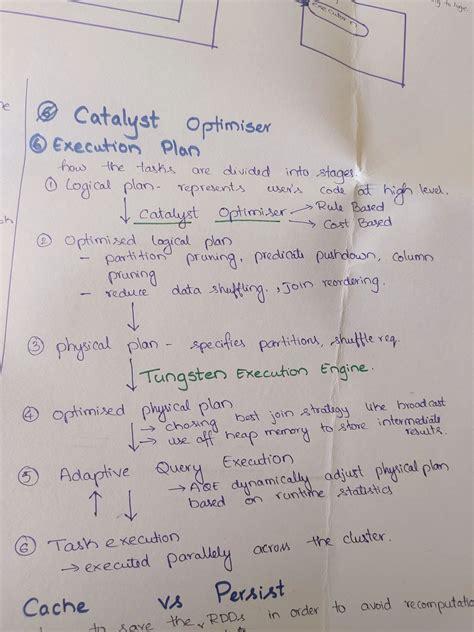 Executor n
⑤ Catalyst Optimiser
⑥ Execution Plan
how the tasks are divided into stages.
① Logical plan - represents user's code at high level.
↓ Catalyst Optimiser → Rule Based
→ Cost Based
② Optimised logical plan
- partition pruning, predicate pushdown, column
pruning
- reduce data shuffling, Join reordering.
↓
③ physical plan - specifies partitions, shuffle req.
↓ Tungsten Execution Engine.
④ Optimised physical plan
→ chosing best join strategy like broadcast
→ use off heap memory to store intermediate
results.
⑤ Adaptive Query Execution
→ AQE dynamically adjust physical plan
based on runtime statistics
↑ ↓
⑥ Task execution
→ executed parallely across the cluster.
Cache vs Persist
to save the RDDs in order to avoid recomputatio